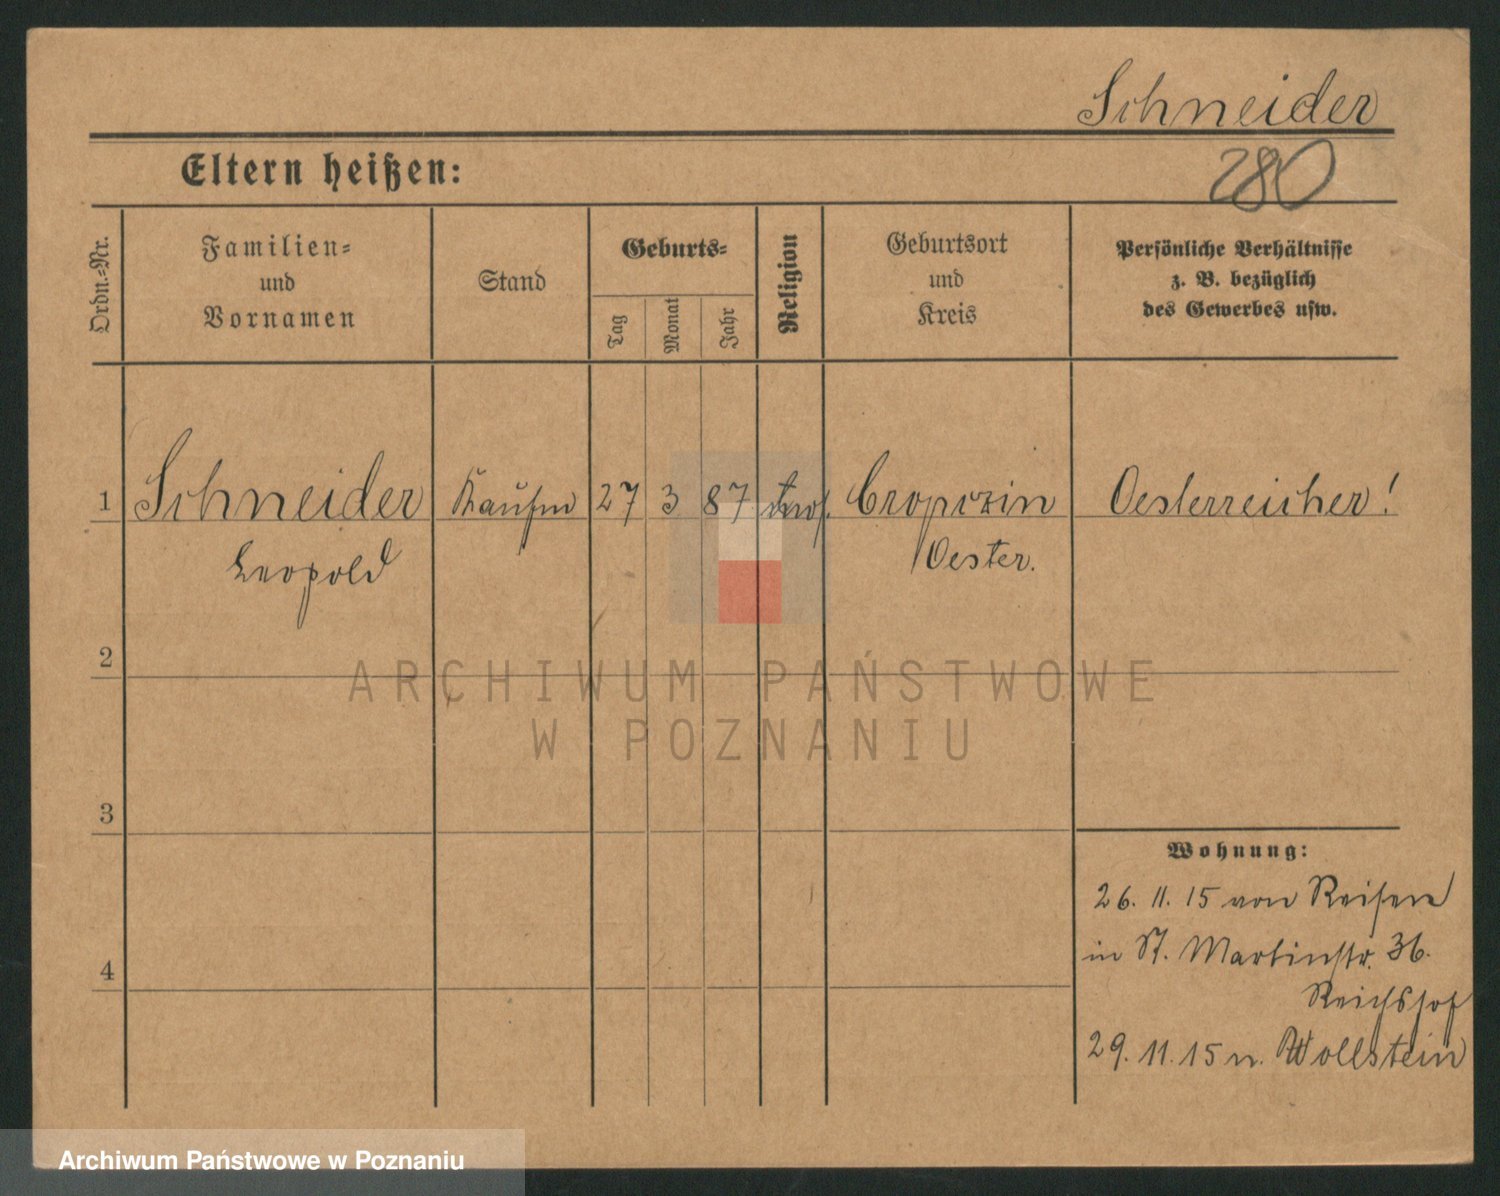 Schneider
Eltern heißen:
280
Ordn.-Nr.
Familien-
und
Vornamen
Stand
Geburts-
Tag
Monat
Jahr
Religion
Geburtsort
und
Kreis
Persönliche Verhältnisse
z. B. bezüglich
des Gewerbes usw.
1 Schneider 27 3 87 Oesterreicher!
Leopold Oester.
2
ARCHIWUM PAŃSTWOWE
W POZNANIU
3
Wohnung:
26. 11. 15 von Reisen
in St. Martinstr. 36.
4
Reichshof
29. 11. 15 n. Wollstein
Archiwum Państwowe w Poznaniu